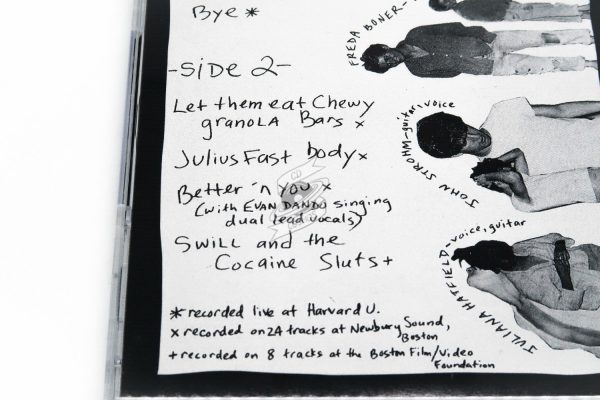 Bye *
-SiDE 2-
Let them eat Chewy
granola Bars x
Julius Fast body x
Better 'n you x
(with EVAN DANDO singing
dual lead vocals)
SWiLL and the
Cocaine Sluts +
* recorded live at Harvard U.
x recorded on 24 tracks at Newbury Sound,
Boston
+ recorded on 8 tracks at the Boston Film/Video
Foundation
FREDA BONER-
JOHN STROHM-guitar, voice
JULIANA HATFIELD-voice, guitar